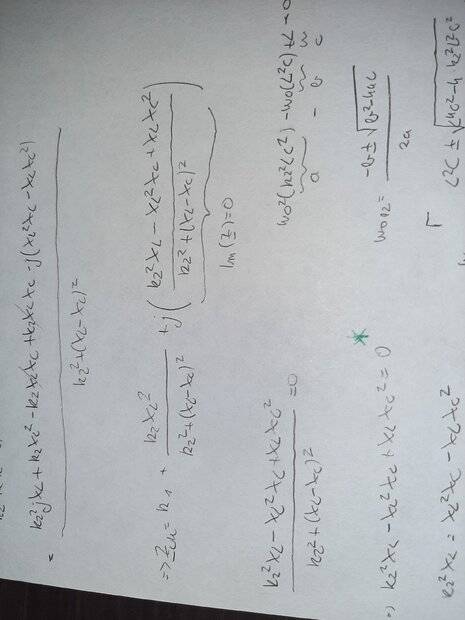 = R₂²jXL + R₂XL² - R₂XLXC + R₂XLXC - j(XL²XC - XLXC²)
R₂² + (XL - XC)²
=> Zul = R1 + R₂XL² / R₂² + (XL - XC)² + j( R₂²XL - XL²XC + XLXC² / R₂² + (XL - XC)² )
Im(Z) = 0
R₂²XL - XL²XC + XLXC² / R₂² + (XL - XC)² = 0
ω0²(R₂²LC²) - ω0(L²C) + L = 0
a - b c
=> R₂²XL - XL²XC + XLXC² = 0
* ω012 = -b ± √b² - 4ac / 2a
R₂²XL = XL²XC - XLXC²
L²C ±